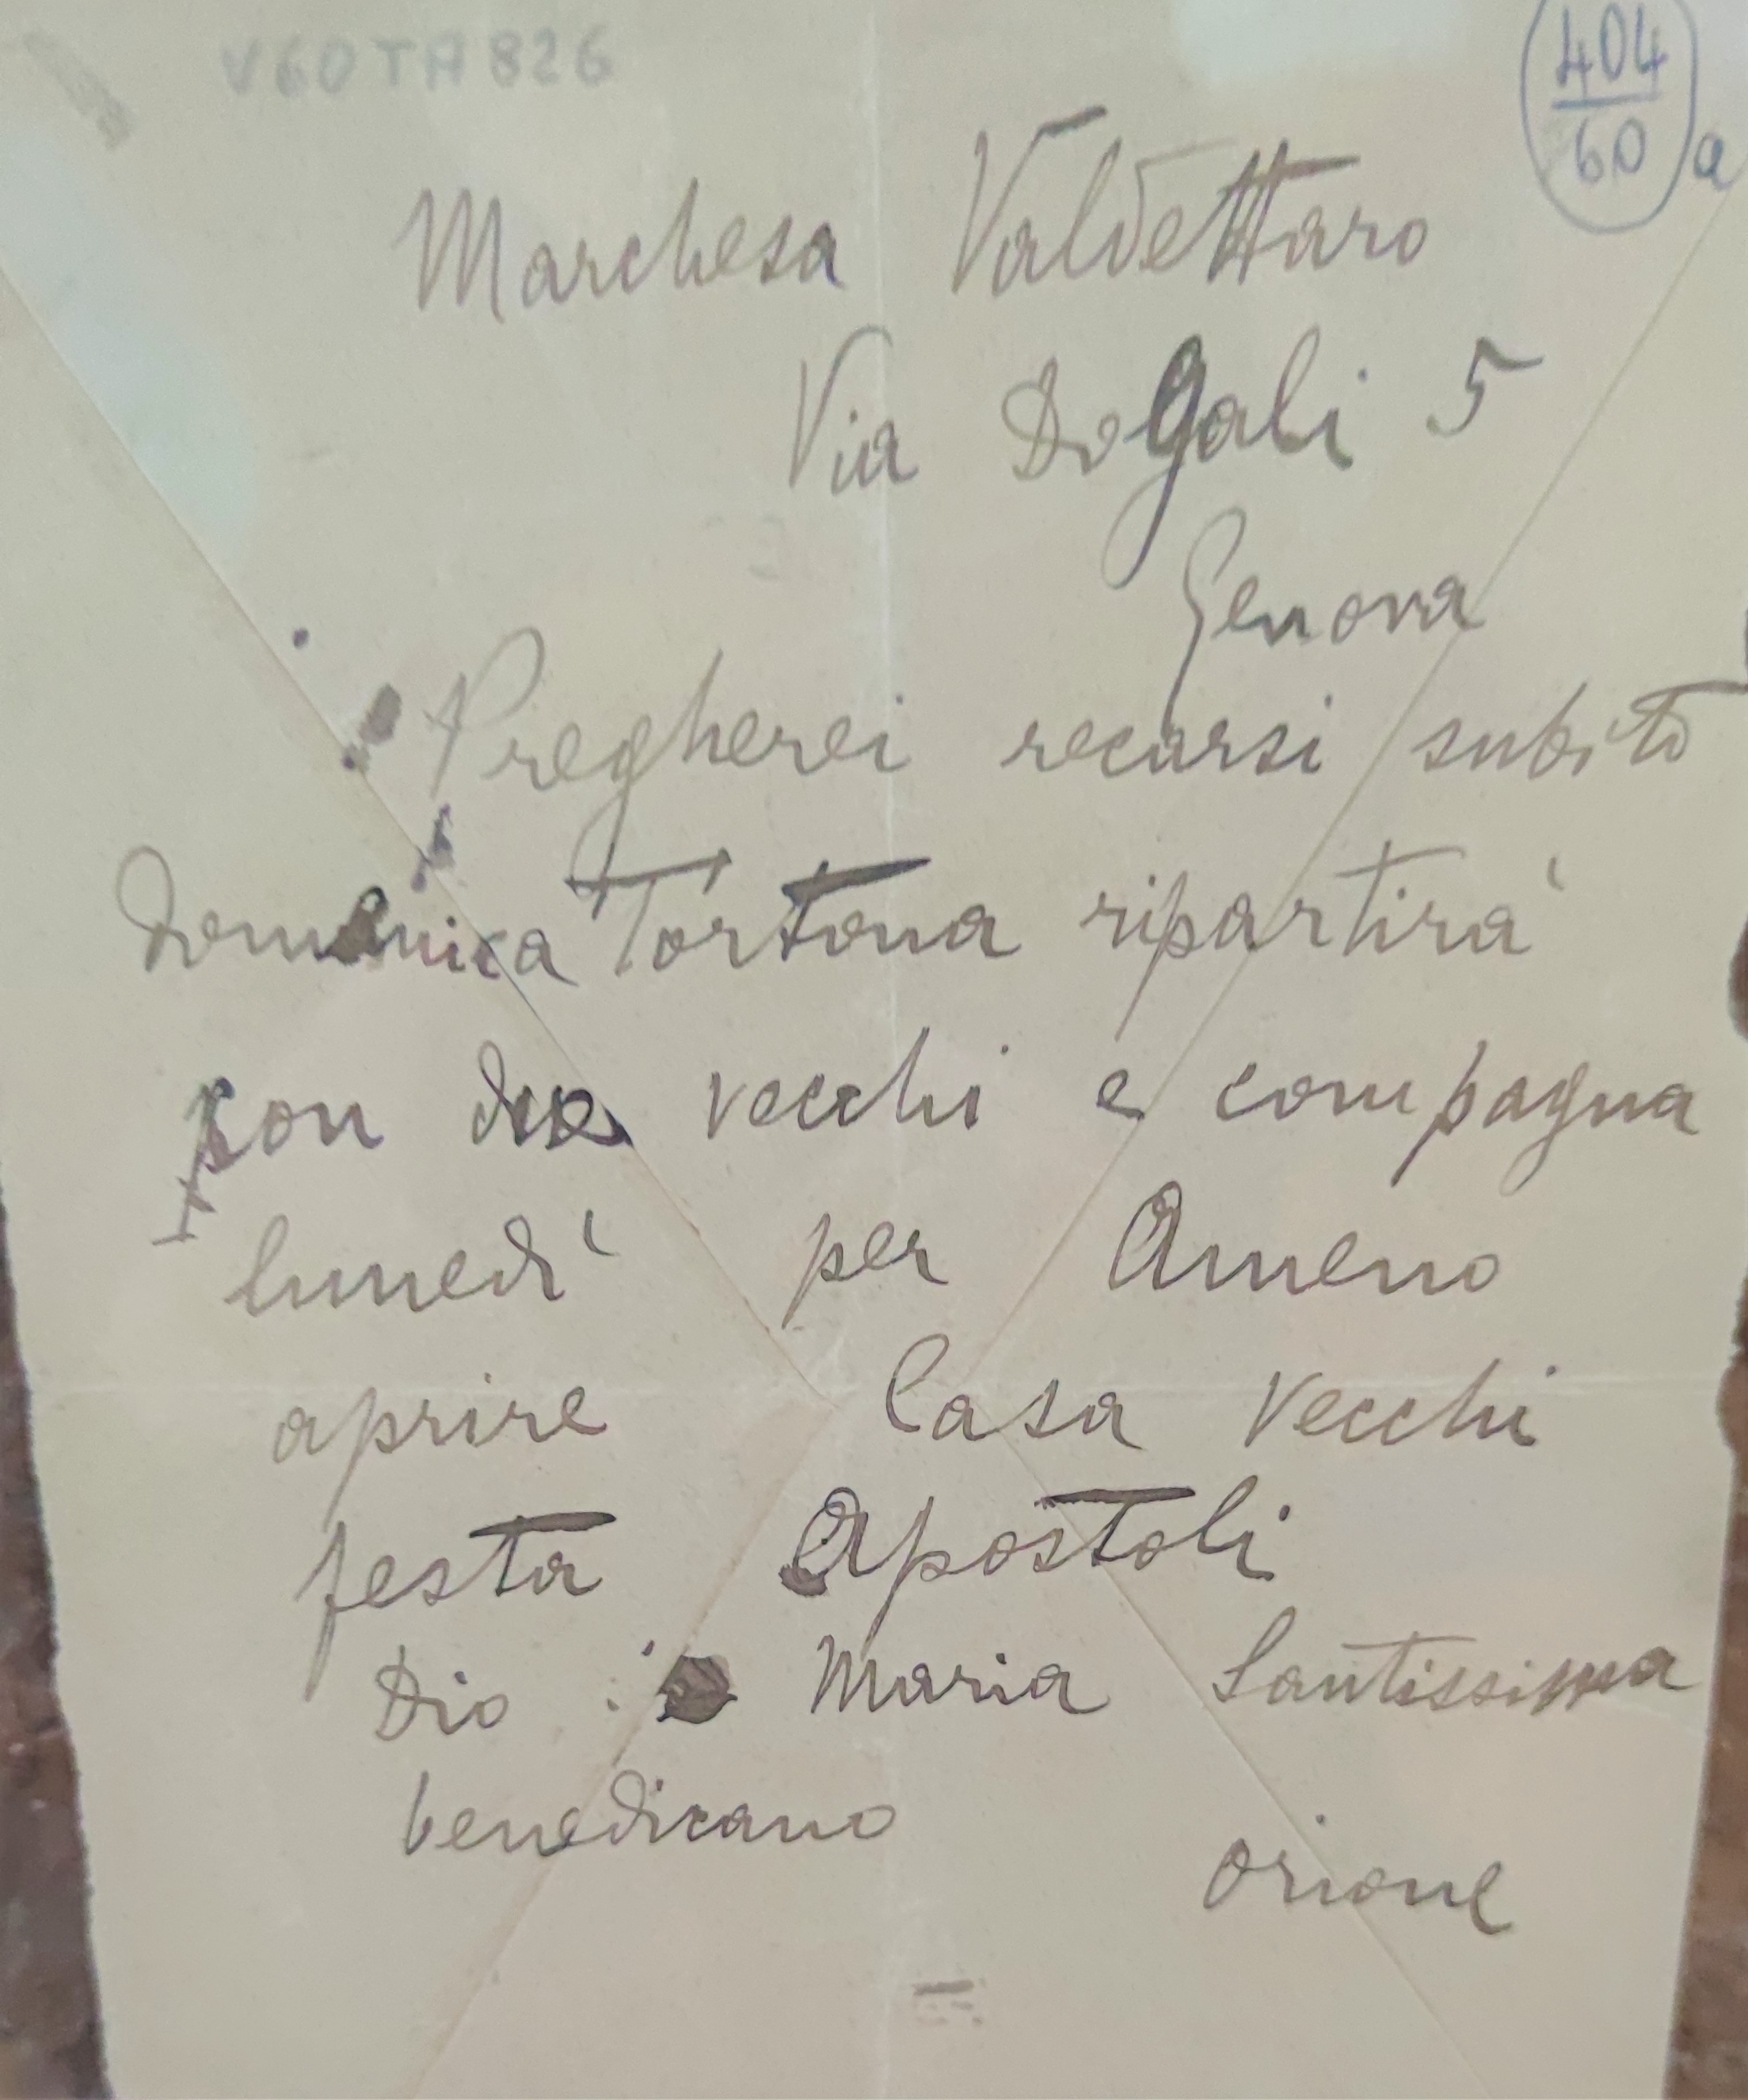 V60TA826
404
60 a
Marchesa Valdettaro
Via Dogali 5
Genova
Pregherei recarsi subito
Domenica Tortona ripartirà
con due vecchi e compagna
lunedì per Ameno
aprire Casa Vecchi
festa Apostoli
Dio Maria Santissima
benedicano
Orione